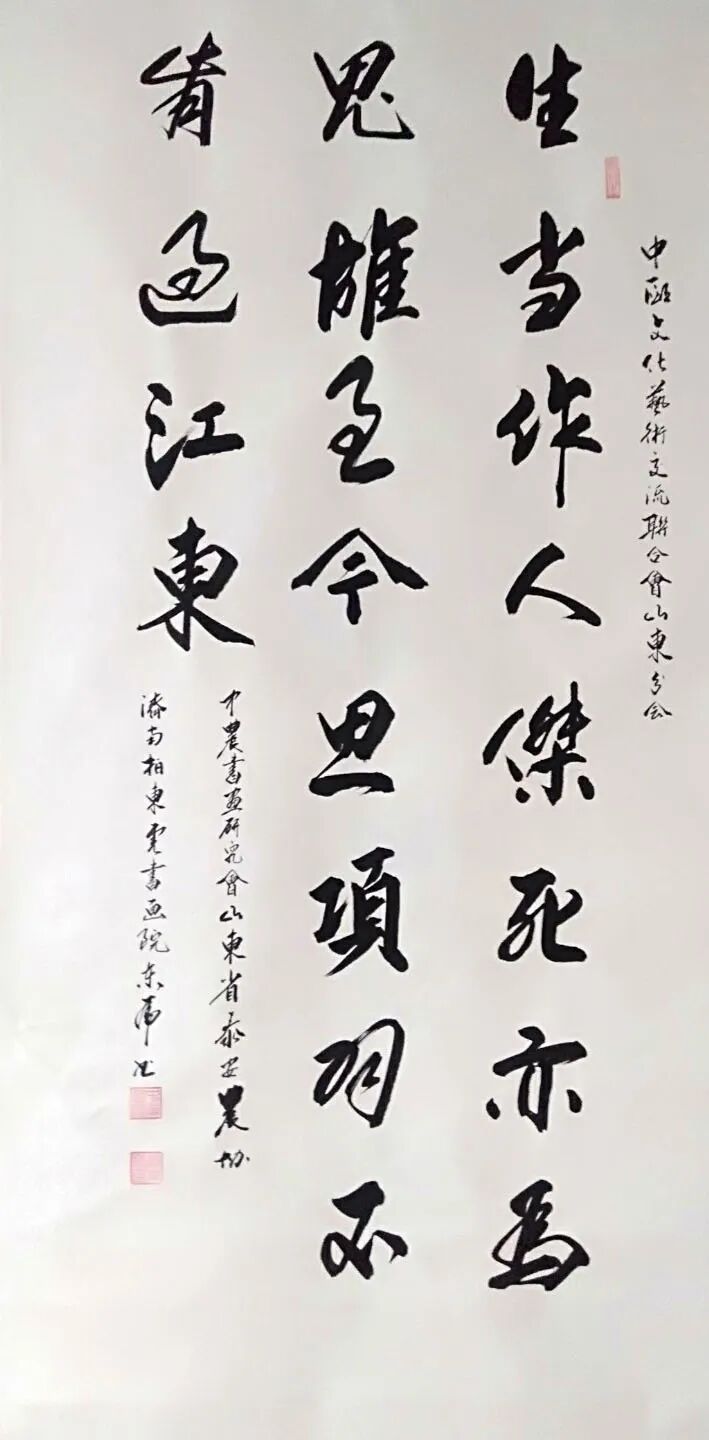 中欧文化藝術交流聯合會山東分会
生当作人傑死亦為
鬼雄至今思項羽不
肯過江東
中農書画研究會山東省泰安農協
濟南柏東雲書画院东